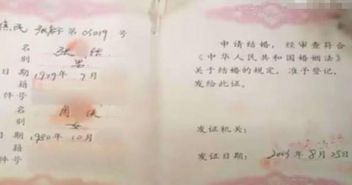 字第05019号
名 张
别 男
日期 1979年7月
籍
件号
名 周
别 女
日期 1980年10月
籍
件号
申请结婚，经审查符合
《中华人民共和国婚姻法》
关于结婚的规定，准予登记，
发给此证。
发证机关：
发证日期：2003年8月25日